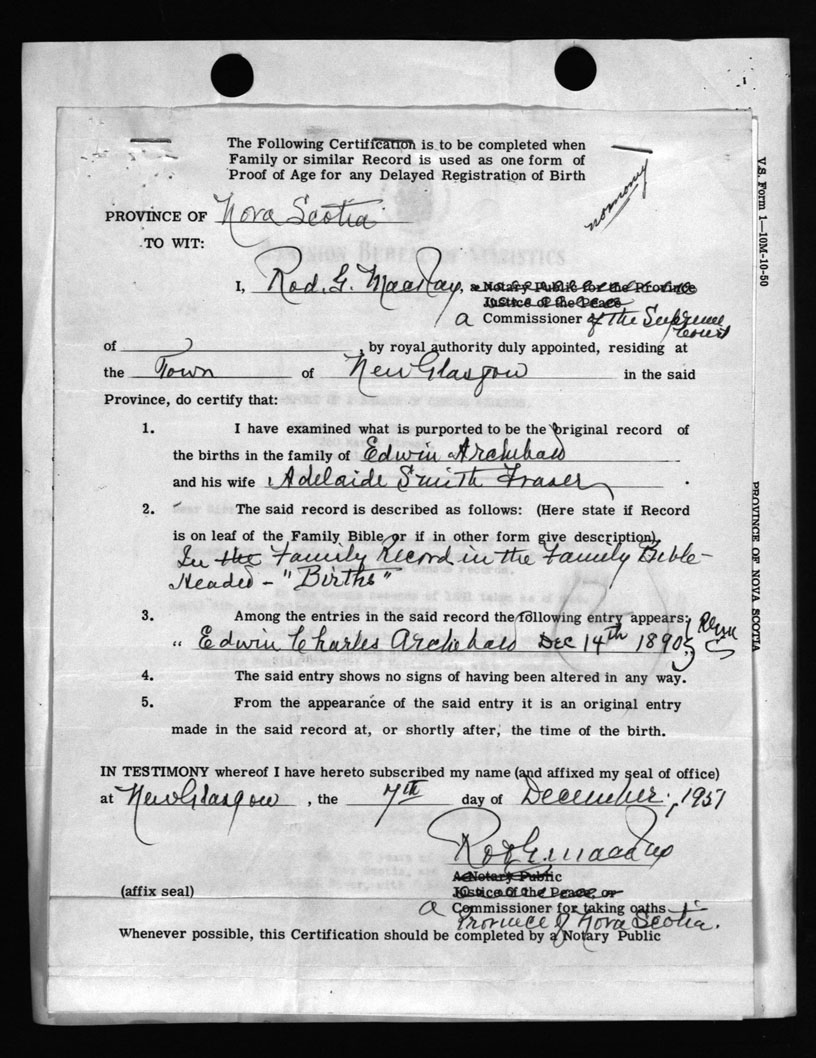 The Following Certification is to be completed when
Family or similar Record is used as one form of
Proof of Age for any Delayed Registration of Birth
V.S. Form 1—10M-10-50
PROVINCE OF Nova Scotia
TO WIT:
I, Rod. G. MacKay, a Notary Public for the Province
Justice of the Peace
a Commissioner of the Supreme
Court
of , by royal authority duly appointed, residing at
the Town of New Glasgow in the said
Province, do certify that:
1. I have examined what is purported to be the original record of
the births in the family of Edwin Archibald
and his wife Adelaide Smith Fraser .
2. The said record is described as follows: (Here state if Record
is on leaf of the Family Bible or if in other form give description)
In the Family Record in the Family Bible-
Headed - "Births"
PROVINCE OF NOVA SCOTIA
3. Among the entries in the said record the following entry appears:
" Edwin Charles Archibald Dec 14th 1890
4. The said entry shows no signs of having been altered in any way.
5. From the appearance of the said entry it is an original entry
made in the said record at, or shortly after, the time of the birth.
IN TESTIMONY whereof I have hereto subscribed my name (and affixed my seal of office)
at New Glasgow , the 7th day of December, 1951
Rod G. MacKay
A Notary Public
(affix seal) Justice of the Peace or
a Commissioner for taking oaths
Province of Nova Scotia.
Whenever possible, this Certification should be completed by a Notary Public